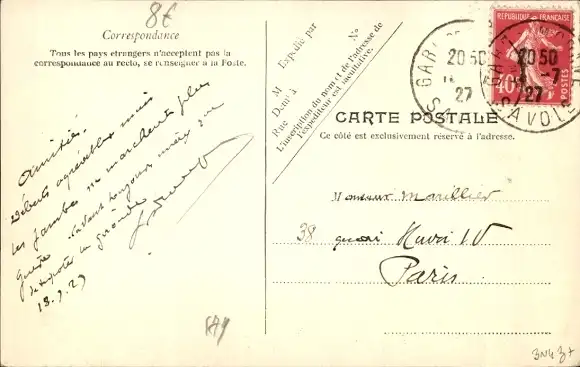 8€
Correspondance
Tous les pays étrangers n'acceptent pas la
correspondance au recto, se renseigner à la Poste.
Expédié par
M
Demt à
Rue
No
L'inscription du nom et de l'adresse de
l'expéditeur est facultative.
RÉPUBLIQUE FRANÇAISE
POSTES
40
GARE
20 50
27
SAVOIE
20 50
-7
27
SAVOIE
CARTE POSTALE
Ce côté est exclusivement réservé à l'adresse.
Amitiés.
Débuts agréables mais
les jambes ne marchent plus
guère
toujours mieux que
Gironde
Monsieur
38 quai Henri IV
Paris